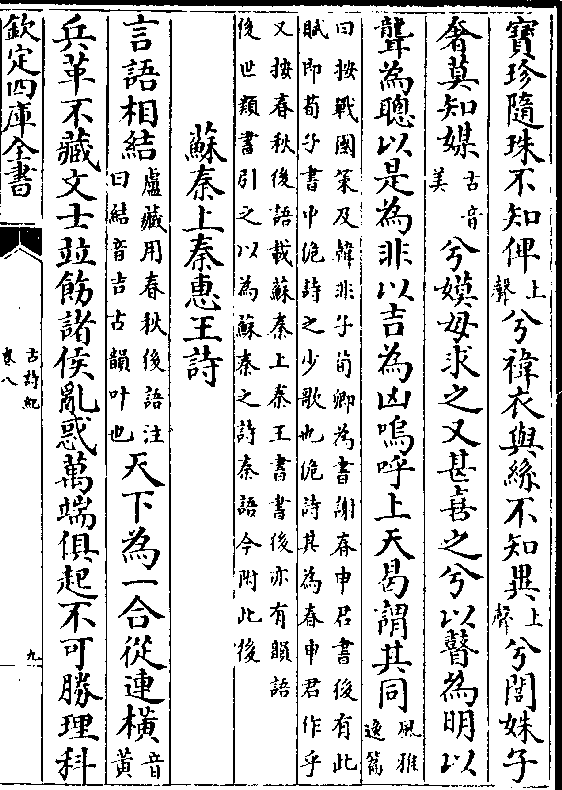 寶珍隨珠不知佩上聲兮褘衣與絲不知異上聲兮閭姝子
奢莫知媒古音美兮嫫母求之又甚喜之兮以瞽為明以
聾為聰以是為非以吉為凶嗚呼上天曷謂其同風雅逸篇
曰按戰國策及韓非子荀卿為書謝春申君書後有此
賦即荀子書中佹詩之少歌也佹詩其為春申君作乎
又按春秋後語載蘇秦上秦王書書後亦有韻語
後世類書引之以為蘇秦之詩秦語今附此後
蘇秦上秦惠王詩
言語相結盧藏用春秋後語注曰結音吉古韻叶也天下為一合從連橫音黃
兵革不藏文士竝飭諸侯亂惑萬端俱起不可勝理科
欽定四庫全書
古詩紀
卷八
九